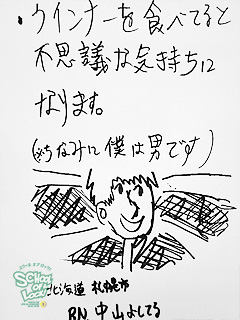 ・ウインナーを食べてると
不思議な気持ちに
なります。
(※ちなみに僕は男です)
SCHOOL
OF
LOCK!
北海道 札幌市
RN. 中山よしてる